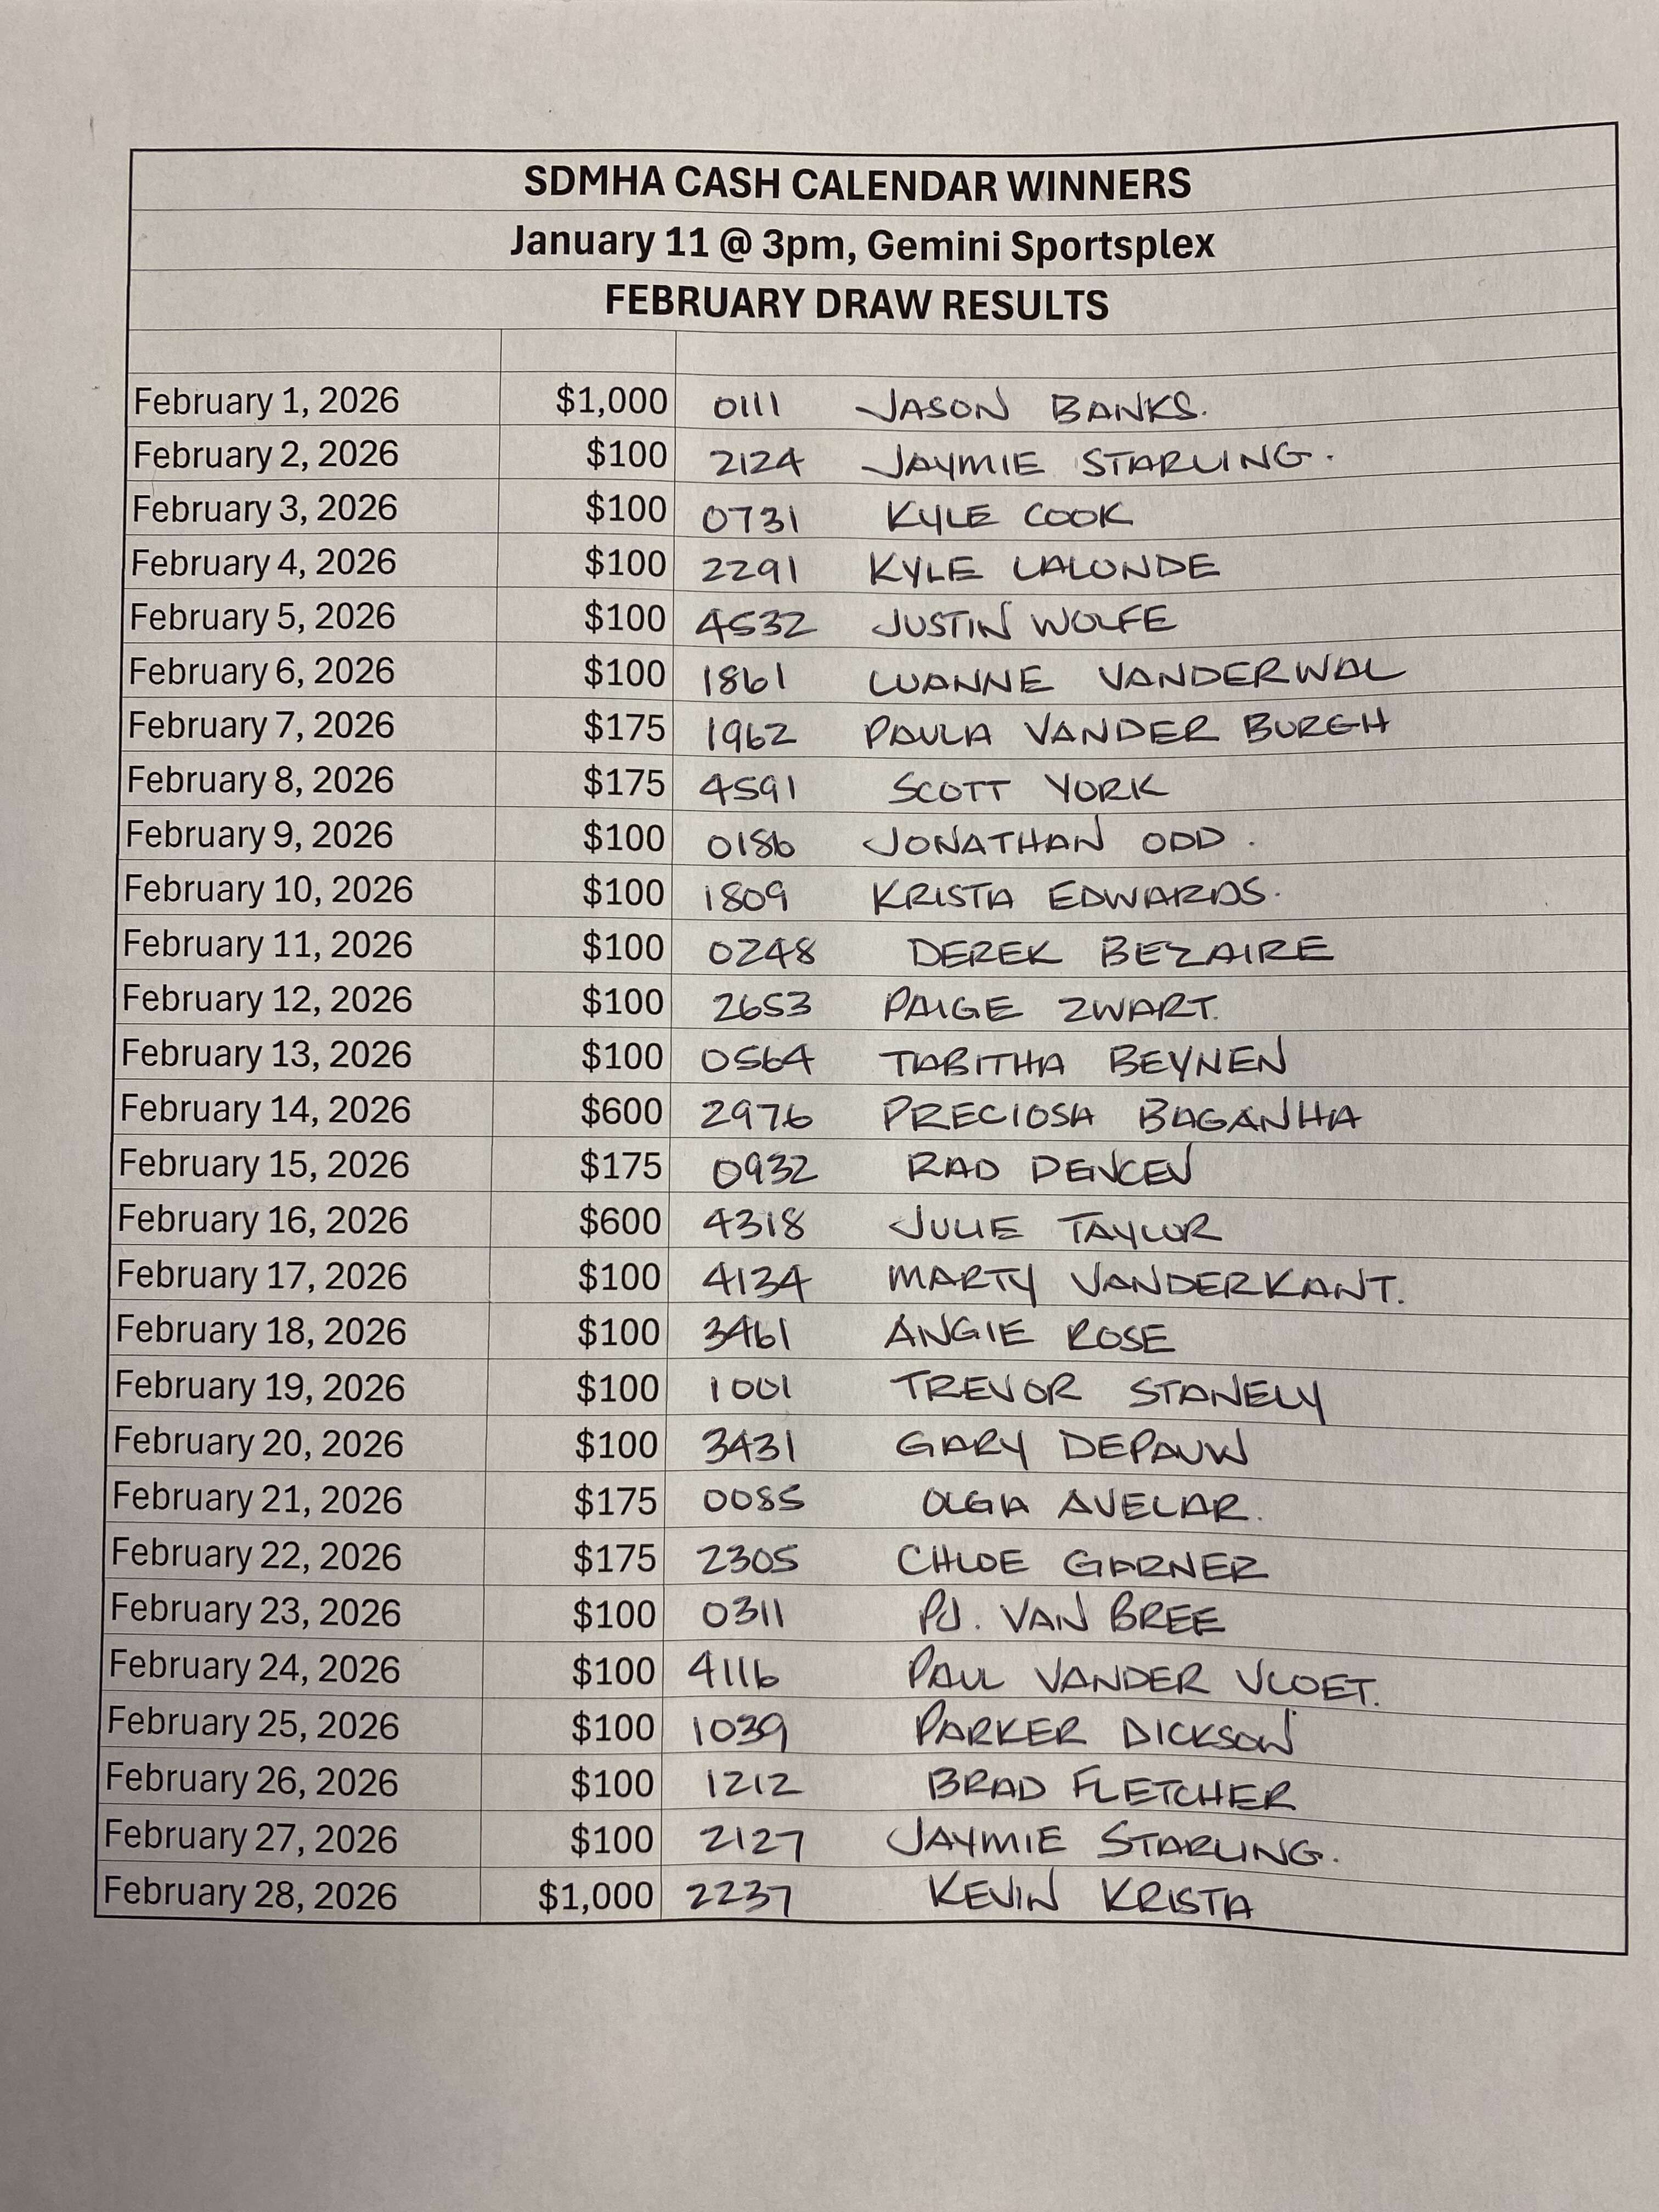 SDMHA CASH CALENDAR WINNERS
January 11 @ 3pm, Gemini Sportsplex
FEBRUARY DRAW RESULTS
February 1, 2026 $1,000 0111 JASON BANKS.
February 2, 2026 $100 2124 JAYMIE STARLING.
February 3, 2026 $100 0731 KYLE COOK
February 4, 2026 $100 2291 KYLE LALONDE
February 5, 2026 $100 4532 JUSTIN WOLFE
February 6, 2026 $100 1861 LUANNE VANDERWAL
February 7, 2026 $175 1962 PAULA VANDER BURGH
February 8, 2026 $175 4591 SCOTT YORK
February 9, 2026 $100 0186 JONATHAN ODD.
February 10, 2026 $100 1809 KRISTA EDWARDS.
February 11, 2026 $100 0248 DEREK BEZAIRE
February 12, 2026 $100 2653 PAIGE ZWART.
February 13, 2026 $100 0564 TABITHA BEYNEN
February 14, 2026 $600 2976 PRECIOSA BAGANHA
February 15, 2026 $175 0932 RAD DENCEV
February 16, 2026 $600 4318 JULIE TAYLOR
February 17, 2026 $100 4134 MARTY VANDERKANT.
February 18, 2026 $100 3461 ANGIE ROSE
February 19, 2026 $100 1001 TREVOR STANELY
February 20, 2026 $100 3431 GARY DEPAUW
February 21, 2026 $175 0085 OLGA AVELAR.
February 22, 2026 $175 2305 CHLOE GARNER
February 23, 2026 $100 0311 PJ. VAN BREE
February 24, 2026 $100 4116 PAUL VANDER VLOET.
February 25, 2026 $100 1039 PARKER DICKSON
February 26, 2026 $100 1212 BRAD FLETCHER
February 27, 2026 $100 2127 JAYMIE STARLING.
February 28, 2026 $1,000 2237 KEVIN KRISTA